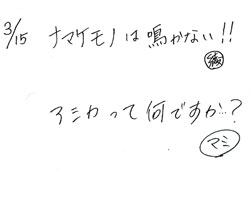 3/15 ナマケモノは鳴かない!!
アシカって何ですか…?
マシ